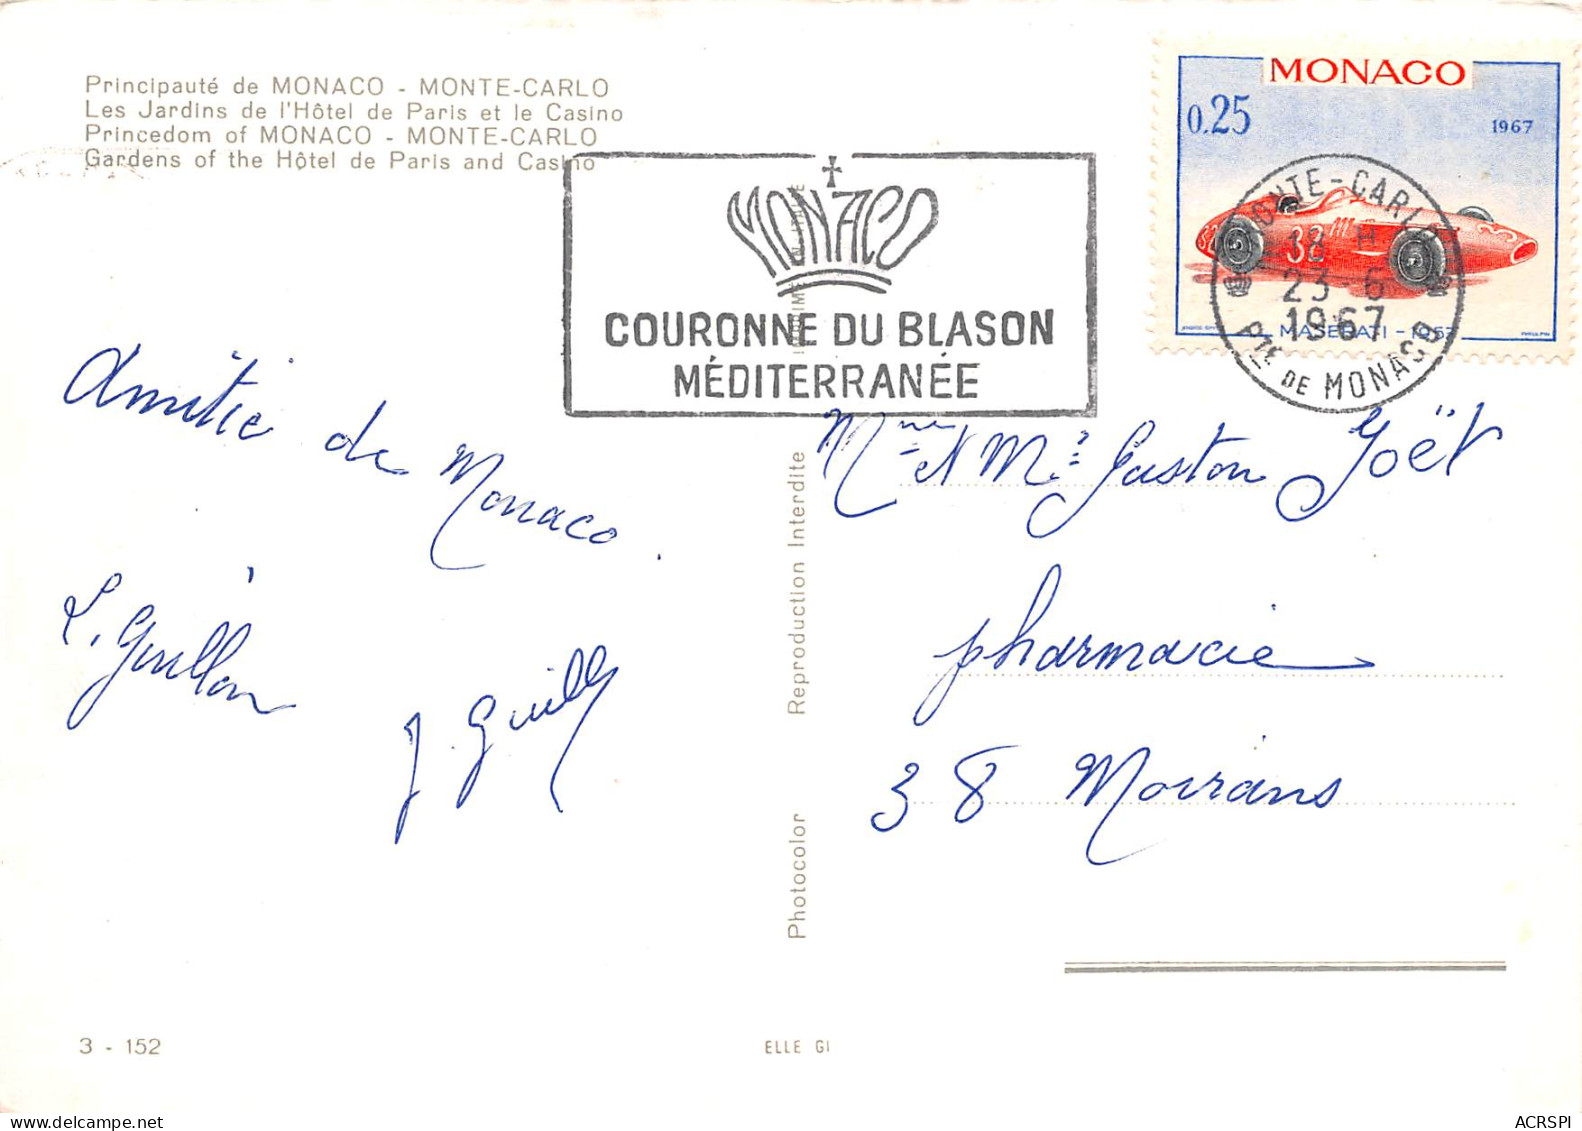 Principauté de MONACO - MONTE-CARLO
Les Jardins de l'Hôtel de Paris et le Casino
Princedom of MONACO - MONTE-CARLO
Gardens of the Hôtel de Paris and Casino
MONACO
COURONNE DU BLASON
MÉDITERRANÉE
MONACO
0.25
1967
32
38
MASERATI - 1957
MONTE-CARLO
18 H
23-6
1967
PTE DE MONACO
Amitié de Monaco.
L. Guillon
J. Guill
Mme et Mr Gaston Joët
pharmacie
38 Moirans
Photocolor Reproduction Interdite
3 - 152
ELLE GI
ACRSPI